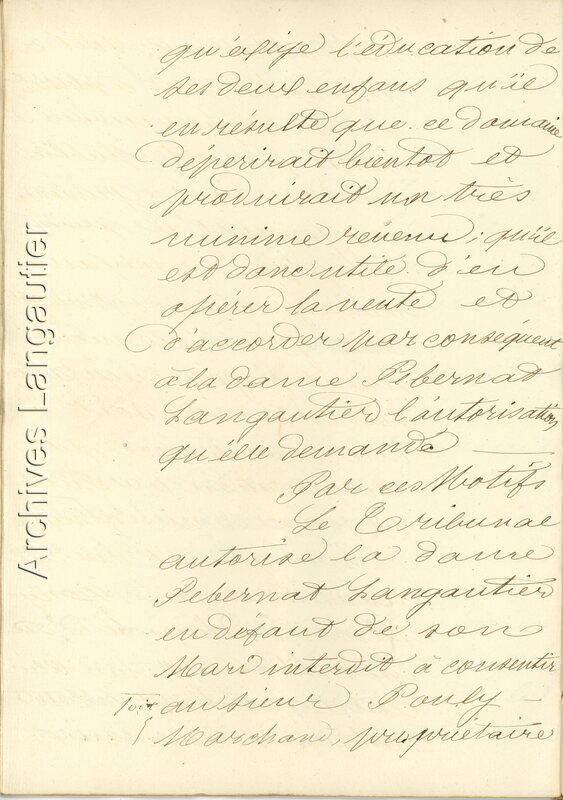 qu'exige l'éducation de
ses deux enfans qu'il
en résulte que ce domaine
dépérirait bientot et
produirait un très
minime revenu ; qu'il
est donc utile d'en
opérer la vente et
d'accorder par conséquent
à la dame Pebernat
Langautier l'autorisation
qu'elle demande
Par ces Motifs
Le Tribunal
autorise la dame
Pebernat Langautier
en défaut de son
Mari interdit à consentir
au sieur Pouly
Marchand, propriétaire
Archives Langautier